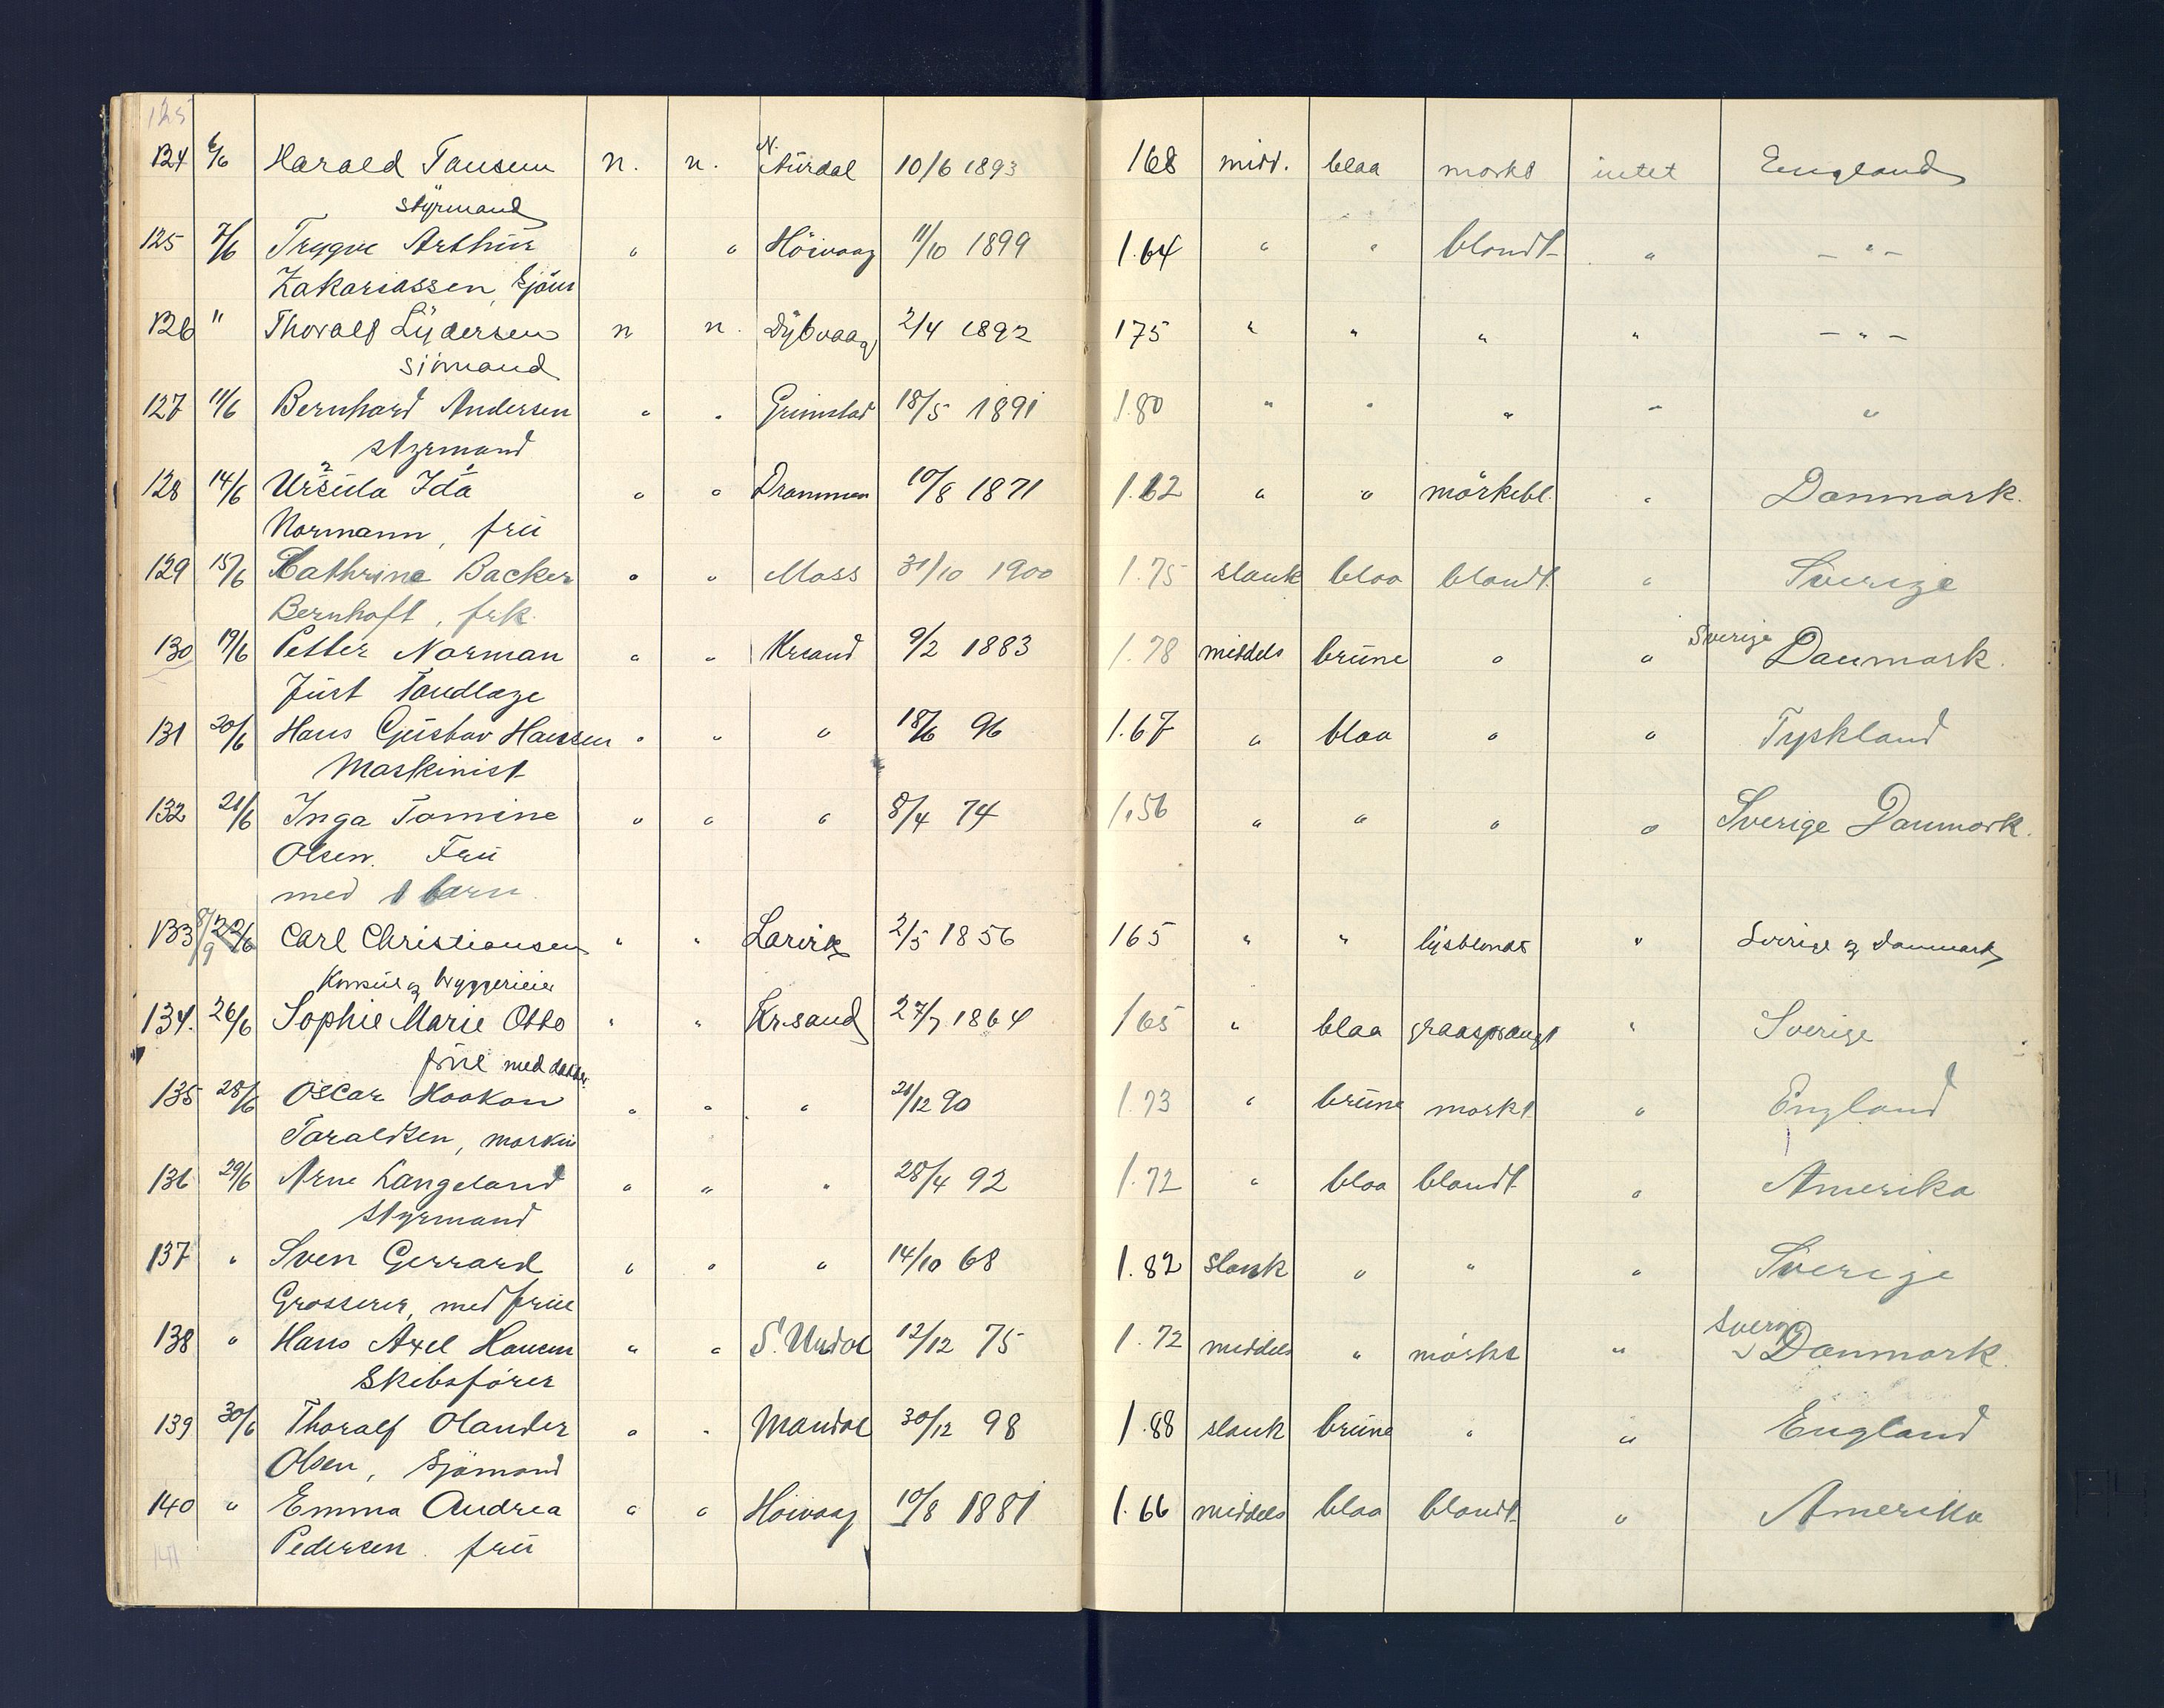 125
124 6/6 Harald Tansem n. n. N. Aürdal 10/6 1893 168 midd. blaa mørkt intet England
stÿrmand
125 7/6 Trygve Arthür " " Höivaag 11/10 1899 1.64 " " blondt " — " —
Zakariassen, Sjöm
126 " Thoralf Lÿdersen n n. Dÿbvaag 2/4 1892 175 " " " " — " —
sjömand
127 11/6 Bernhard Andersen " " Grimstad 18/5 1891 1.80 " " " " "
styrmand
128 14/6 Ursüla Ida " " Drammen 10/8 1871 1.62 " " mörkebl. " Danmark.
Normann, frü
129 15/6 Kathrine Backer " " Moss 31/10 1900 1.75 slank blaa blondt " Sverige
Bernhoft, frk.
130 19/6 Petter Norman " " Krsand 9/2 1883 1.78 middels brüne " " Sverige Danmark.
Jüst Tandlæge
131 20/6 Hans Güstav Hansen " " " 18/6 96 1.67 " blaa " " Tyskland
Maskinist
132 21/6 Inga Tomine " " " 8/4 74 1.56 " " " " Sverige Danmark.
Olsen. Frü
med 1 barn
133 8/9 22/6 Carl Christiansen " " Larvik 2/5 1856 165 " " lysblondt " Sverige & Danmark
Konsül & bryggerieier
134. 26/6 Sophie Marie Otto " " Kr.sand 27/7 1864 165 " blaa graasprængt " Sverige
früe med datter
135 28/6 Oscar Haakon " " " 21/12 90 1.73 " brüne mørkt " England
Taraldsen, maskin
136 29/6 Arne Langeland " " " 28/4 92 1.72 " blaa blondt " Amerika
styrmand
137 " Sven Gerrard " " " 14/10 68 1.82 slank " " " Sverige
Grosserer, med früe
138 " Hans Axel Hansen " " S. Undal 12/12 75 1.72 middels " mørkt " Sverige Danmark.
Skibsförer
139 30/6 Thoralf Olander " " Mandal 30/12 98 1.88 slank brüne " " England
Olsen, Sjömand
140 " Emma Andrea " " Höivaag 10/8 1881 1.66 middels blaa blondt " Amerika
Pedersen. frü
141